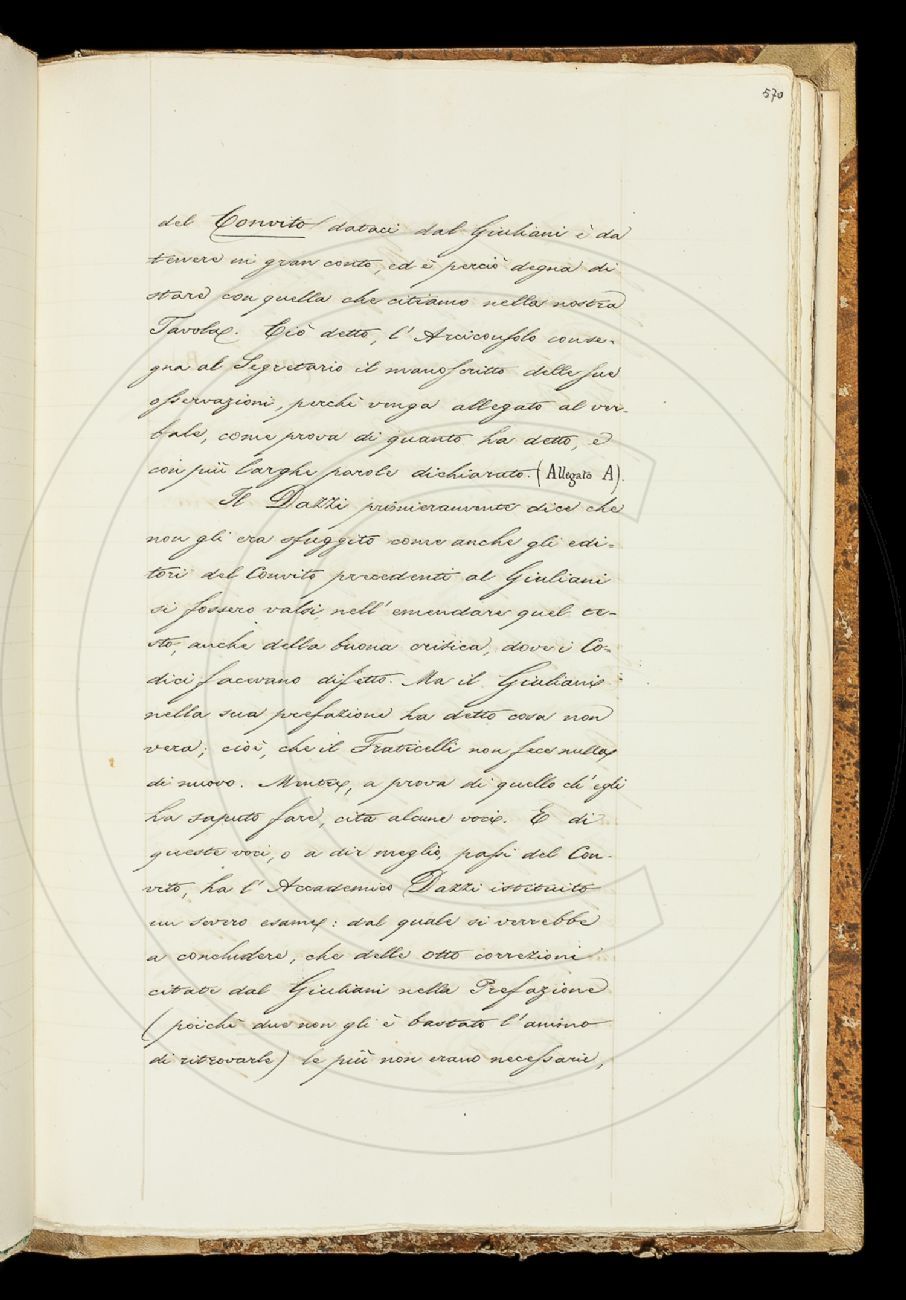 570
del Convito dataci dal Giuliani è da
tenere in gran conto, ed è perciò degna di
stare con quella che citiamo nella nostra
Tavola. Ciò detto, l'Arciconsolo conse-
gna al Segretario il manoscritto delle sue
osservazioni, perchè venga allegato al ver-
bale, come prova di quanto ha detto, e
con più larghe parole dichiarato. (Allegato A).
Il Dazzi primieramente dice che
non gli era sfuggito come anche gli edi-
tori del Convito precedenti al Giuliani
si fossero valsi, nell'emendare quel te-
sto, anche della buona critica, dove i Co-
dici facevano difetto. Ma il Giuliani
nella sua prefazione ha detto cosa non
vera; cioè, che il Fraticelli non fece nulla
di nuovo. Mentre, a prova di quello ch'egli
ha saputo fare, cita alcune voci. E di
queste voci, o a dir meglio, passi del Con-
vito, ha l'Accademico Dazzi istituito
un severo esame: dal quale si verrebbe
a concludere, che delle otto correzioni
citate dal Giuliani nella Prefazione
(poichè due non gli è bastato l'animo
di ritrovarle) le più non erano necessarie,